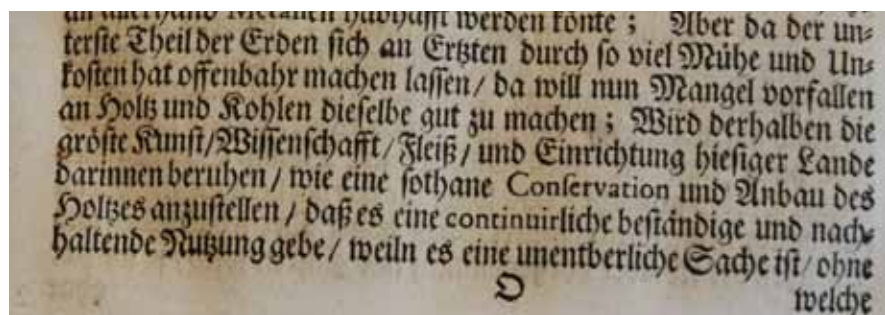 an allerhand Metallen habhafft werden könte ; Aber da der un⸗
terste Theil der Erden sich an Ertzten durch so viel Mühe und Un⸗
kosten hat offenbahr machen lassen / da will nun Mangel vorfallen
an Holtz und Kohlen dieselbe gut zu machen ; Wird derhalben die
gröste Kunst/Wissenschafft/Fleiß/ und Einrichtung hiesiger Lande
darinnen beruhen / wie eine sothane Conservation und Anbau des
Holtzes anzustellen / daß es eine continuirliche beständige und nach⸗
haltende Nutzung gebe / weiln es eine unentberliche Sache ist / ohne
O
welche